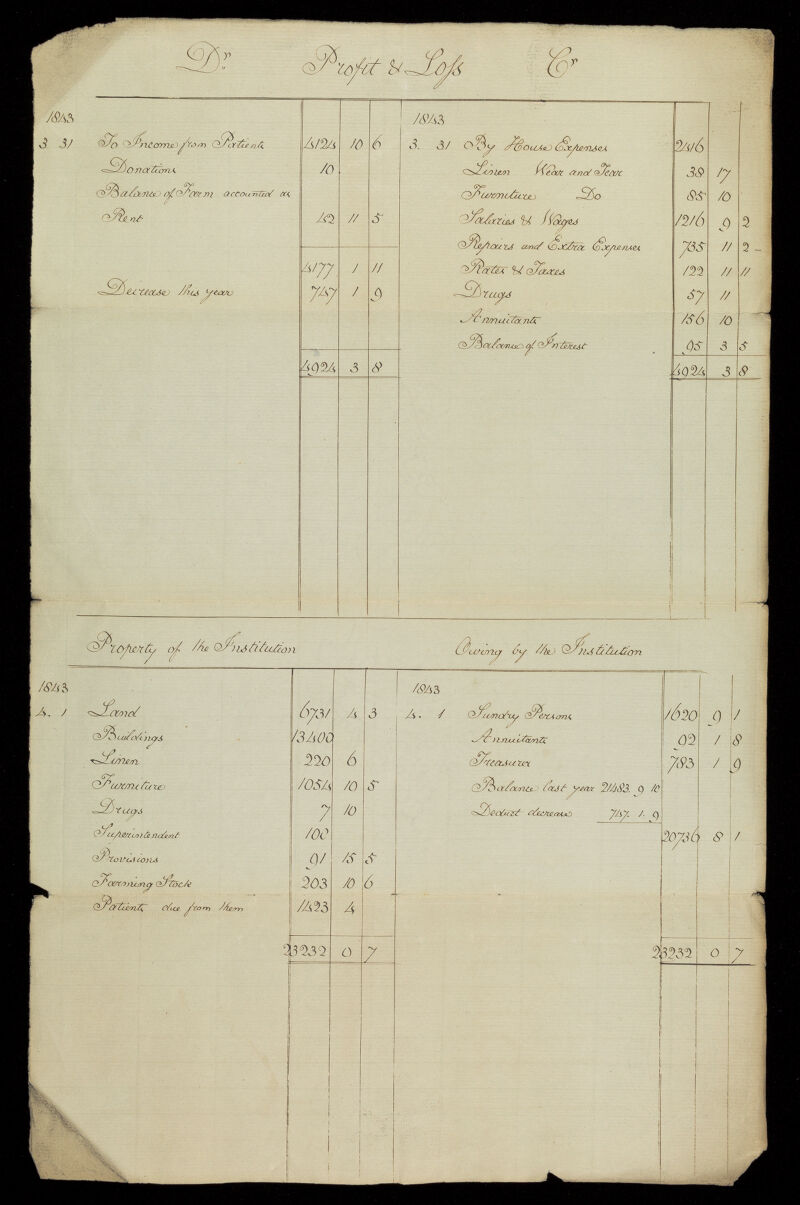 Dr Profit & Loss Cr
1843
3 31 To Income from Patients 4124 10 6
Donations 10
Balance of Farm accounted as
Rent 42 11 5
4177 1 11
Decrease this year 747 1 9
4924 3 8
1843
3. 31 By House Expenses 2416
Linen Wear and Tear 38 17
Furniture Do 85 10
Salaries & Wages 1216 9 2
Repairs and Extra Expenses 735 11 2
Rates & Taxes 122 11 11
Drugs 57 11
Annuitants 156 10
Balance of Interest 95 3 5
4924 3 8
Property of the Institution
1843
4. 1 Land 6731 4 3
Buildings 13400
Linen 220 6
Furniture 1054 10 5
Drugs 7 10
Superintendent 100
Provisions 91 15 5
Farming Stock 203 10 6
Patients due from them 1423 4
23232 0 7
Owing by the Institution
1843
4. 1 Sundry Persons 1620 9 1
Annuitants 92 1 8
Treasurer 783 1 9
Balance last year 21483. 9 10
Deduct decrease 747. 1. 9
20736 8 1
23232 0 7